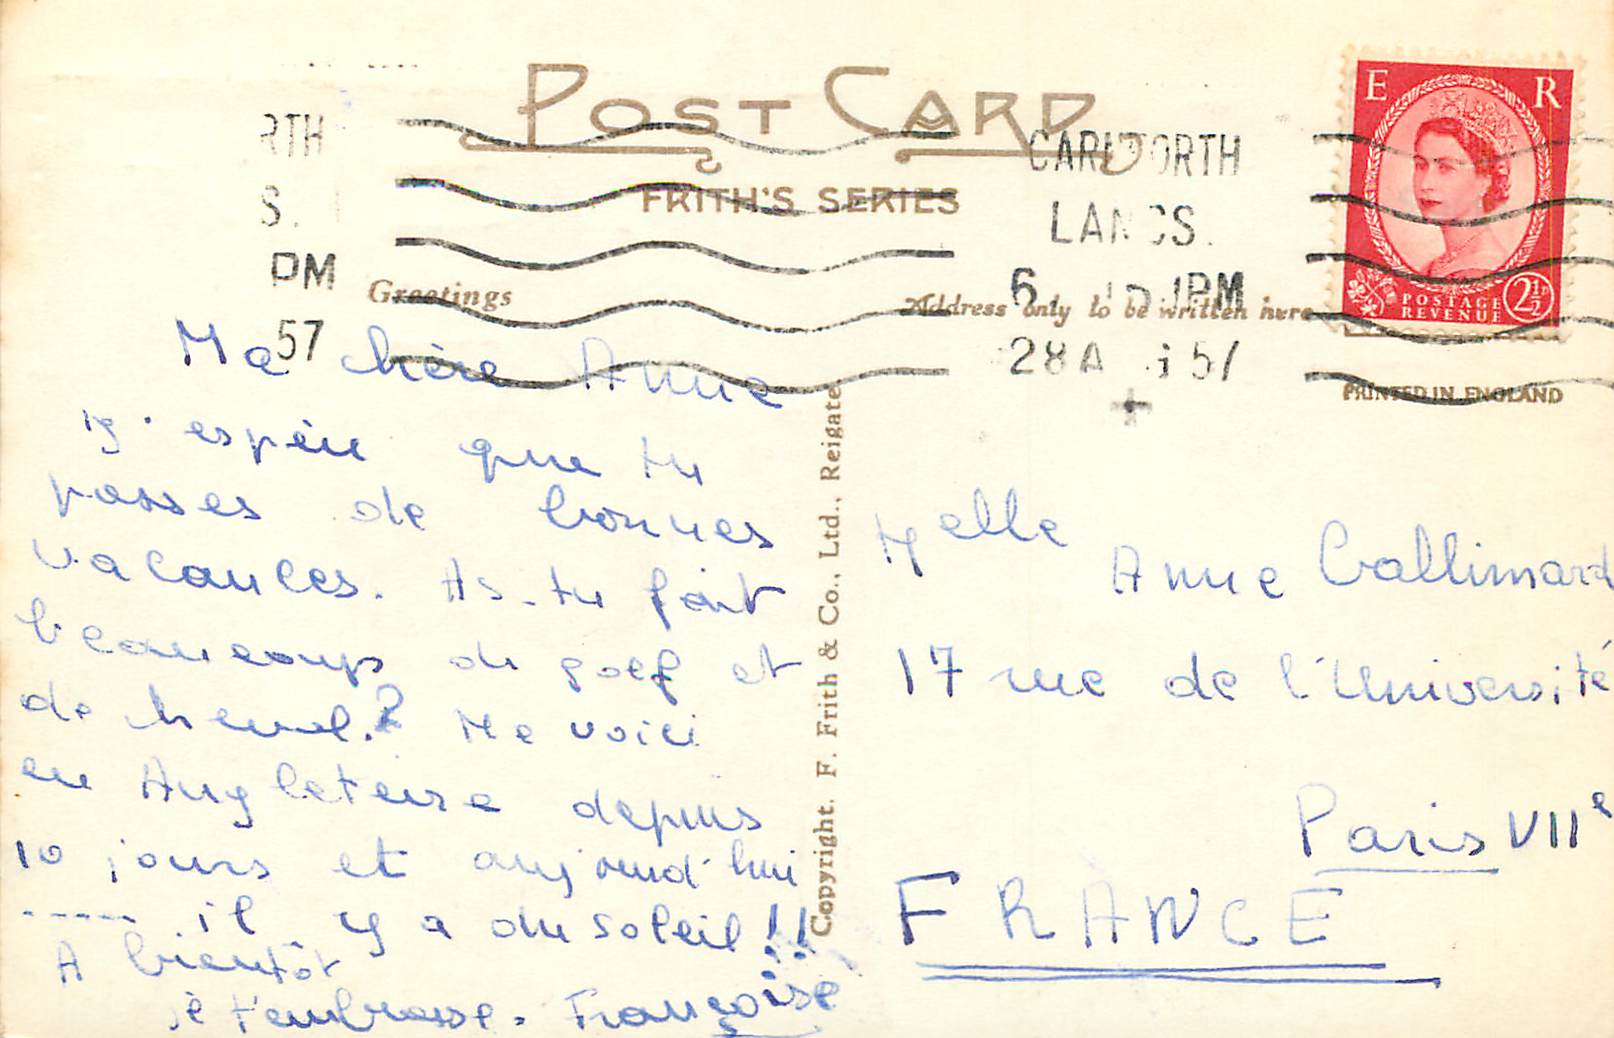 POST CARD
FRITH'S SERIES
RTH
S.
PM
57
CARNFORTH
LANCS.
6 15 PM
28 A 57
E R
POSTAGE
REVENUE
2½D
Greetings
Address only to be written here
PRINTED IN ENGLAND
Ma chère Anne
J'espère que tu
passes de bonnes
vacances. As-tu fait
beaucoups de golf et
de cheval.? Me voici
en Angleterre depuis
10 jours et aujourd'hui
----- il y a du soleil!!
A bientôt
je t'embrasse. Françoise
Copyright. F. Frith & Co., Ltd., Reigate
Melle Anne Gallimard
17 rue de l'Université
Paris VIIe
FRANCE